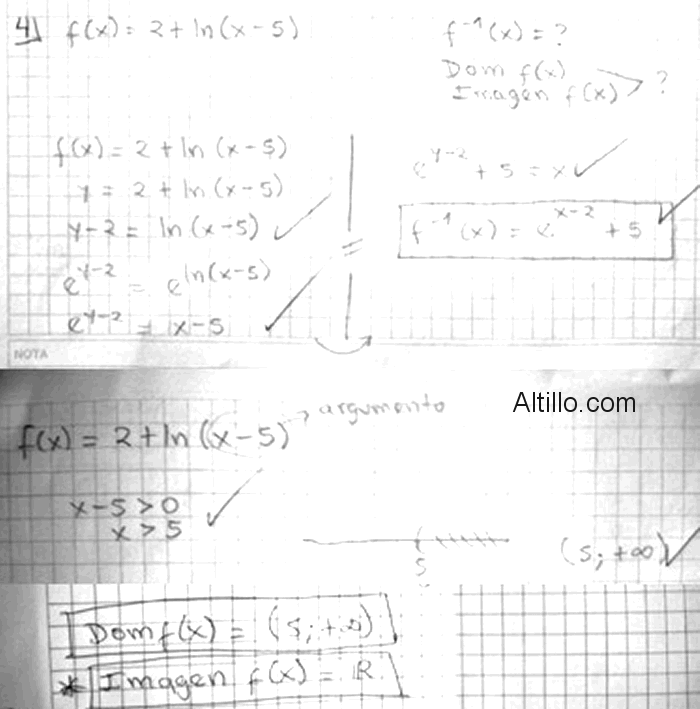 4) f(x) = 2 + ln(x-5)
f⁻¹(x) = ?
Dom f(x)
Imagen f(x) > ?
f(x) = 2 + ln(x-5)
y = 2 + ln(x-5)
y-2 = ln(x-5)
e^(y-2) = e^(ln(x-5))
e^(y-2) = x-5
e^(y-2) + 5 = x
f⁻¹(x) = e^(x-2) + 5
NOTA
Altillo.com
f(x) = 2 + ln(x-5) → argumento
x-5 > 0
x > 5
5
(5; +∞)
Dom f(x) = (5; +∞)
* Imagen f(x) = ℝ